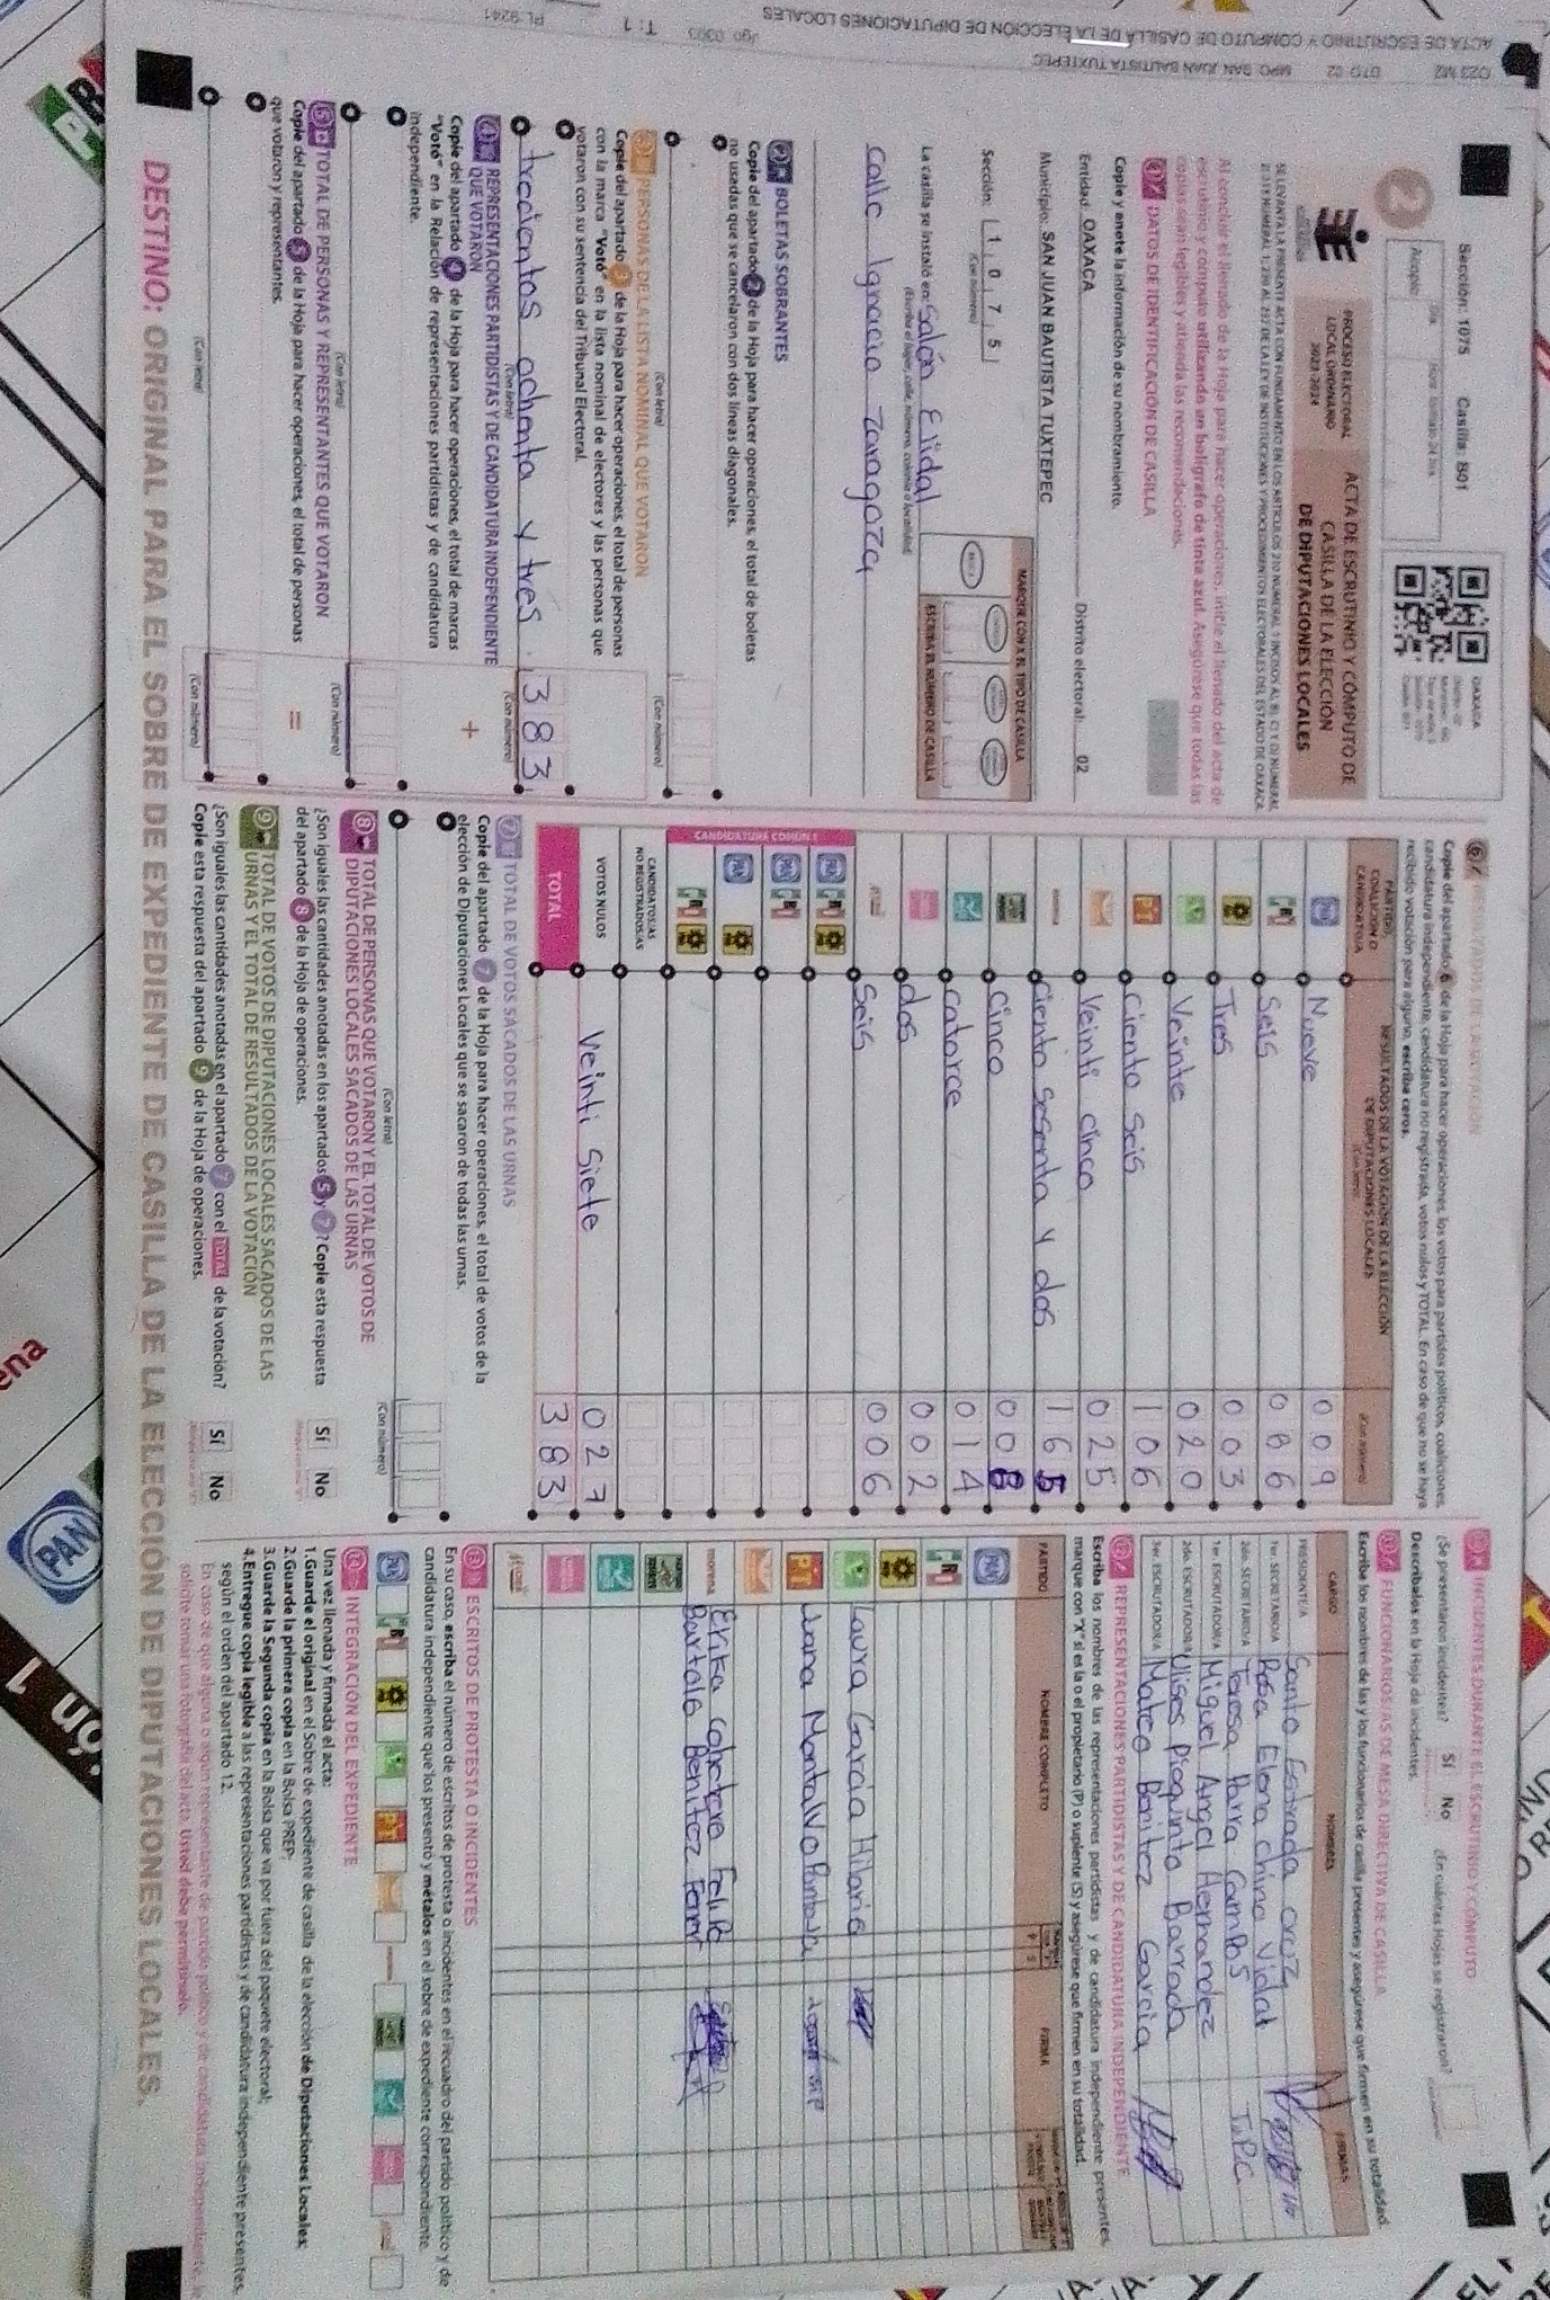 Sección: 1075 Casilla: B01
Acopio:
OAXACA
2
PROCESO ELECTORAL
LOCAL ORDINARIO
2023-2024
ACTA DE ESCRUTINIO Y CÓMPUTO DE
CASILLA DE LA ELECCIÓN
DE DIPUTACIONES LOCALES
Al concluir el llenado de la Hoja para hacer operaciones, inicie el llenado del acta de
escrutinio y cómputo utilizando un bolígrafo de tinta azul. Asegúrese que todas las
copias sean legibles y atienda las recomendaciones.
1 DATOS DE IDENTIFICACIÓN DE CASILLA
Copie y anote la información de su nombramiento.
Entidad: OAXACA Distrito electoral: 02
Municipio: SAN JUAN BAUTISTA TUXTEPEC
Sección: 1 0 7 5
(Con número)
MARQUE CON X EL TIPO DE CASILLA
BÁSICA
ESCRIBA EL NÚMERO DE CASILLA
La casilla se instaló en: Salón Ejidal
(Escriba el lugar, calle, número, colonia o localidad)
calle Ignacio Zaragoza
2 BOLETAS SOBRANTES
Copie del apartado 2 de la Hoja para hacer operaciones, el total de boletas
no usadas que se cancelaron con dos líneas diagonales.
(Con letra) (Con número)
3 PERSONAS DE LA LISTA NOMINAL QUE VOTARON
Copie del apartado 3 de la Hoja para hacer operaciones, el total de personas
con la marca "Votó" en la lista nominal de electores y las personas que
votaron con su sentencia del Tribunal Electoral.
trecientos ochenta y tres 383
(Con letra) (Con número)
4 REPRESENTACIONES PARTIDISTAS Y DE CANDIDATURA INDEPENDIENTE
QUE VOTARON +
Copie del apartado 4 de la Hoja para hacer operaciones, el total de marcas
"Votó" en la Relación de representaciones partidistas y de candidatura
independiente.
(Con letra) (Con número)
5 TOTAL DE PERSONAS Y REPRESENTANTES QUE VOTARON
Copie del apartado 5 de la Hoja para hacer operaciones, el total de personas
que votaron y representantes. =
(Con letra) (Con número)
6 RESULTADOS DE LA VOTACIÓN
Copie del apartado 6 de la Hoja para hacer operaciones, los votos para partidos políticos, coaliciones,
candidatura independiente, candidatura no registrada, votos nulos y TOTAL. En caso de que no se haya
recibido votación para alguno, escriba ceros.
PARTIDO,
COALICIÓN O
CANDIDATO/A
RESULTADOS DE LA VOTACIÓN DE LA ELECCIÓN
DE DIPUTACIONES LOCALES
(Con letra) (Con número)
PAN Nueve 009
PRI Seis 006
PRD Tres 003
Veinte 020
PT ciento seis 106
Veinti cinco 025
morena ciento sesenta y dos 165
cinco 008
catorce 014
dos 002
Seis 006
CANDIDATURA COMÚN 1
CANDIDATOS/AS
NO REGISTRADOS/AS
VOTOS NULOS Veinti siete 027
TOTAL 383
7 TOTAL DE VOTOS SACADOS DE LAS URNAS
Copie del apartado 7 de la Hoja para hacer operaciones, el total de votos de la
elección de Diputaciones Locales que se sacaron de todas las urnas.
(Con letra) (Con número)
8 TOTAL DE PERSONAS QUE VOTARON Y EL TOTAL DE VOTOS DE
DIPUTACIONES LOCALES SACADOS DE LAS URNAS
¿Son iguales las cantidades anotadas en los apartados 5 y 7? Copie esta respuesta
del apartado 8 de la Hoja de operaciones. Sí No
9 TOTAL DE VOTOS DE DIPUTACIONES LOCALES SACADOS DE LAS
URNAS Y EL TOTAL DE RESULTADOS DE LA VOTACIÓN
¿Son iguales las cantidades anotadas en el apartado 7 con el TOTAL de la votación?
Copie esta respuesta del apartado 9 de la Hoja de operaciones. Sí No
10 INCIDENTES DURANTE EL ESCRUTINIO Y CÓMPUTO
¿Se presentaron incidentes? Sí No ¿En cuántas Hojas se registraron?
Descríbalos en la Hoja de incidentes.
11 FUNCIONARIOS/AS DE MESA DIRECTIVA DE CASILLA
Escriba los nombres de las y los funcionarios de casilla presentes y asegúrese que firmen en su totalidad.
CARGO NOMBRES FIRMAS
PRESIDENTE/A Santo Estrada cruz
1er. SECRETARIO/A Rosa Elena china Vidal
2do. SECRETARIO/A Teresa Parra Campos T.P.C
1er. ESCRUTADOR/A Miguel Angel Hernandez
2do. ESCRUTADOR/A Ulises Pioquinto Barrada
3er. ESCRUTADOR/A Mateo Benitez Garcia
12 REPRESENTACIONES PARTIDISTAS Y DE CANDIDATURA INDEPENDIENTE
Escriba los nombres de las representaciones partidistas y de candidatura independiente presentes,
marque con "X" si es la o el propietario (P) o suplente (S) y asegúrese que firmen en su totalidad.
PARTIDO NOMBRE COMPLETO FIRMA
Laura Garcia Hilario
PT
morena
Bartolo Benitez Ferrer
13 ESCRITOS DE PROTESTA O INCIDENTES
En su caso, escriba el número de escritos de protesta o incidentes en el recuadro del partido político y de
candidatura independiente que los presentó y métalos en el sobre de expediente correspondiente.
14 INTEGRACIÓN DEL EXPEDIENTE
Una vez llenada y firmada el acta:
1.Guarde el original en el Sobre de expediente de casilla de la elección de Diputaciones Locales;
2.Guarde la primera copia en la Bolsa PREP;
3.Guarde la Segunda copia en la Bolsa que va por fuera del paquete electoral;
4.Entregue copia legible a las representaciones partidistas y de candidatura independiente presentes,
según el orden del apartado 12.
En caso de que alguna o algún representante de partido político y de candidatura independiente, le
solicite tomar una fotografía del acta. Usted debe permitírselo.
DESTINO: ORIGINAL PARA EL SOBRE DE EXPEDIENTE DE CASILLA DE LA ELECCIÓN DE DIPUTACIONES LOCALES.
ACTA DE ESCRUTINIO Y COMPUTO DE CASILLA DE LA ELECCION DE DIPUTACIONES LOCALES
MPO: SAN JUAN BAUTISTA TUXTEPEC
T: 1
PL: 9241
PAN
ena
ón 1